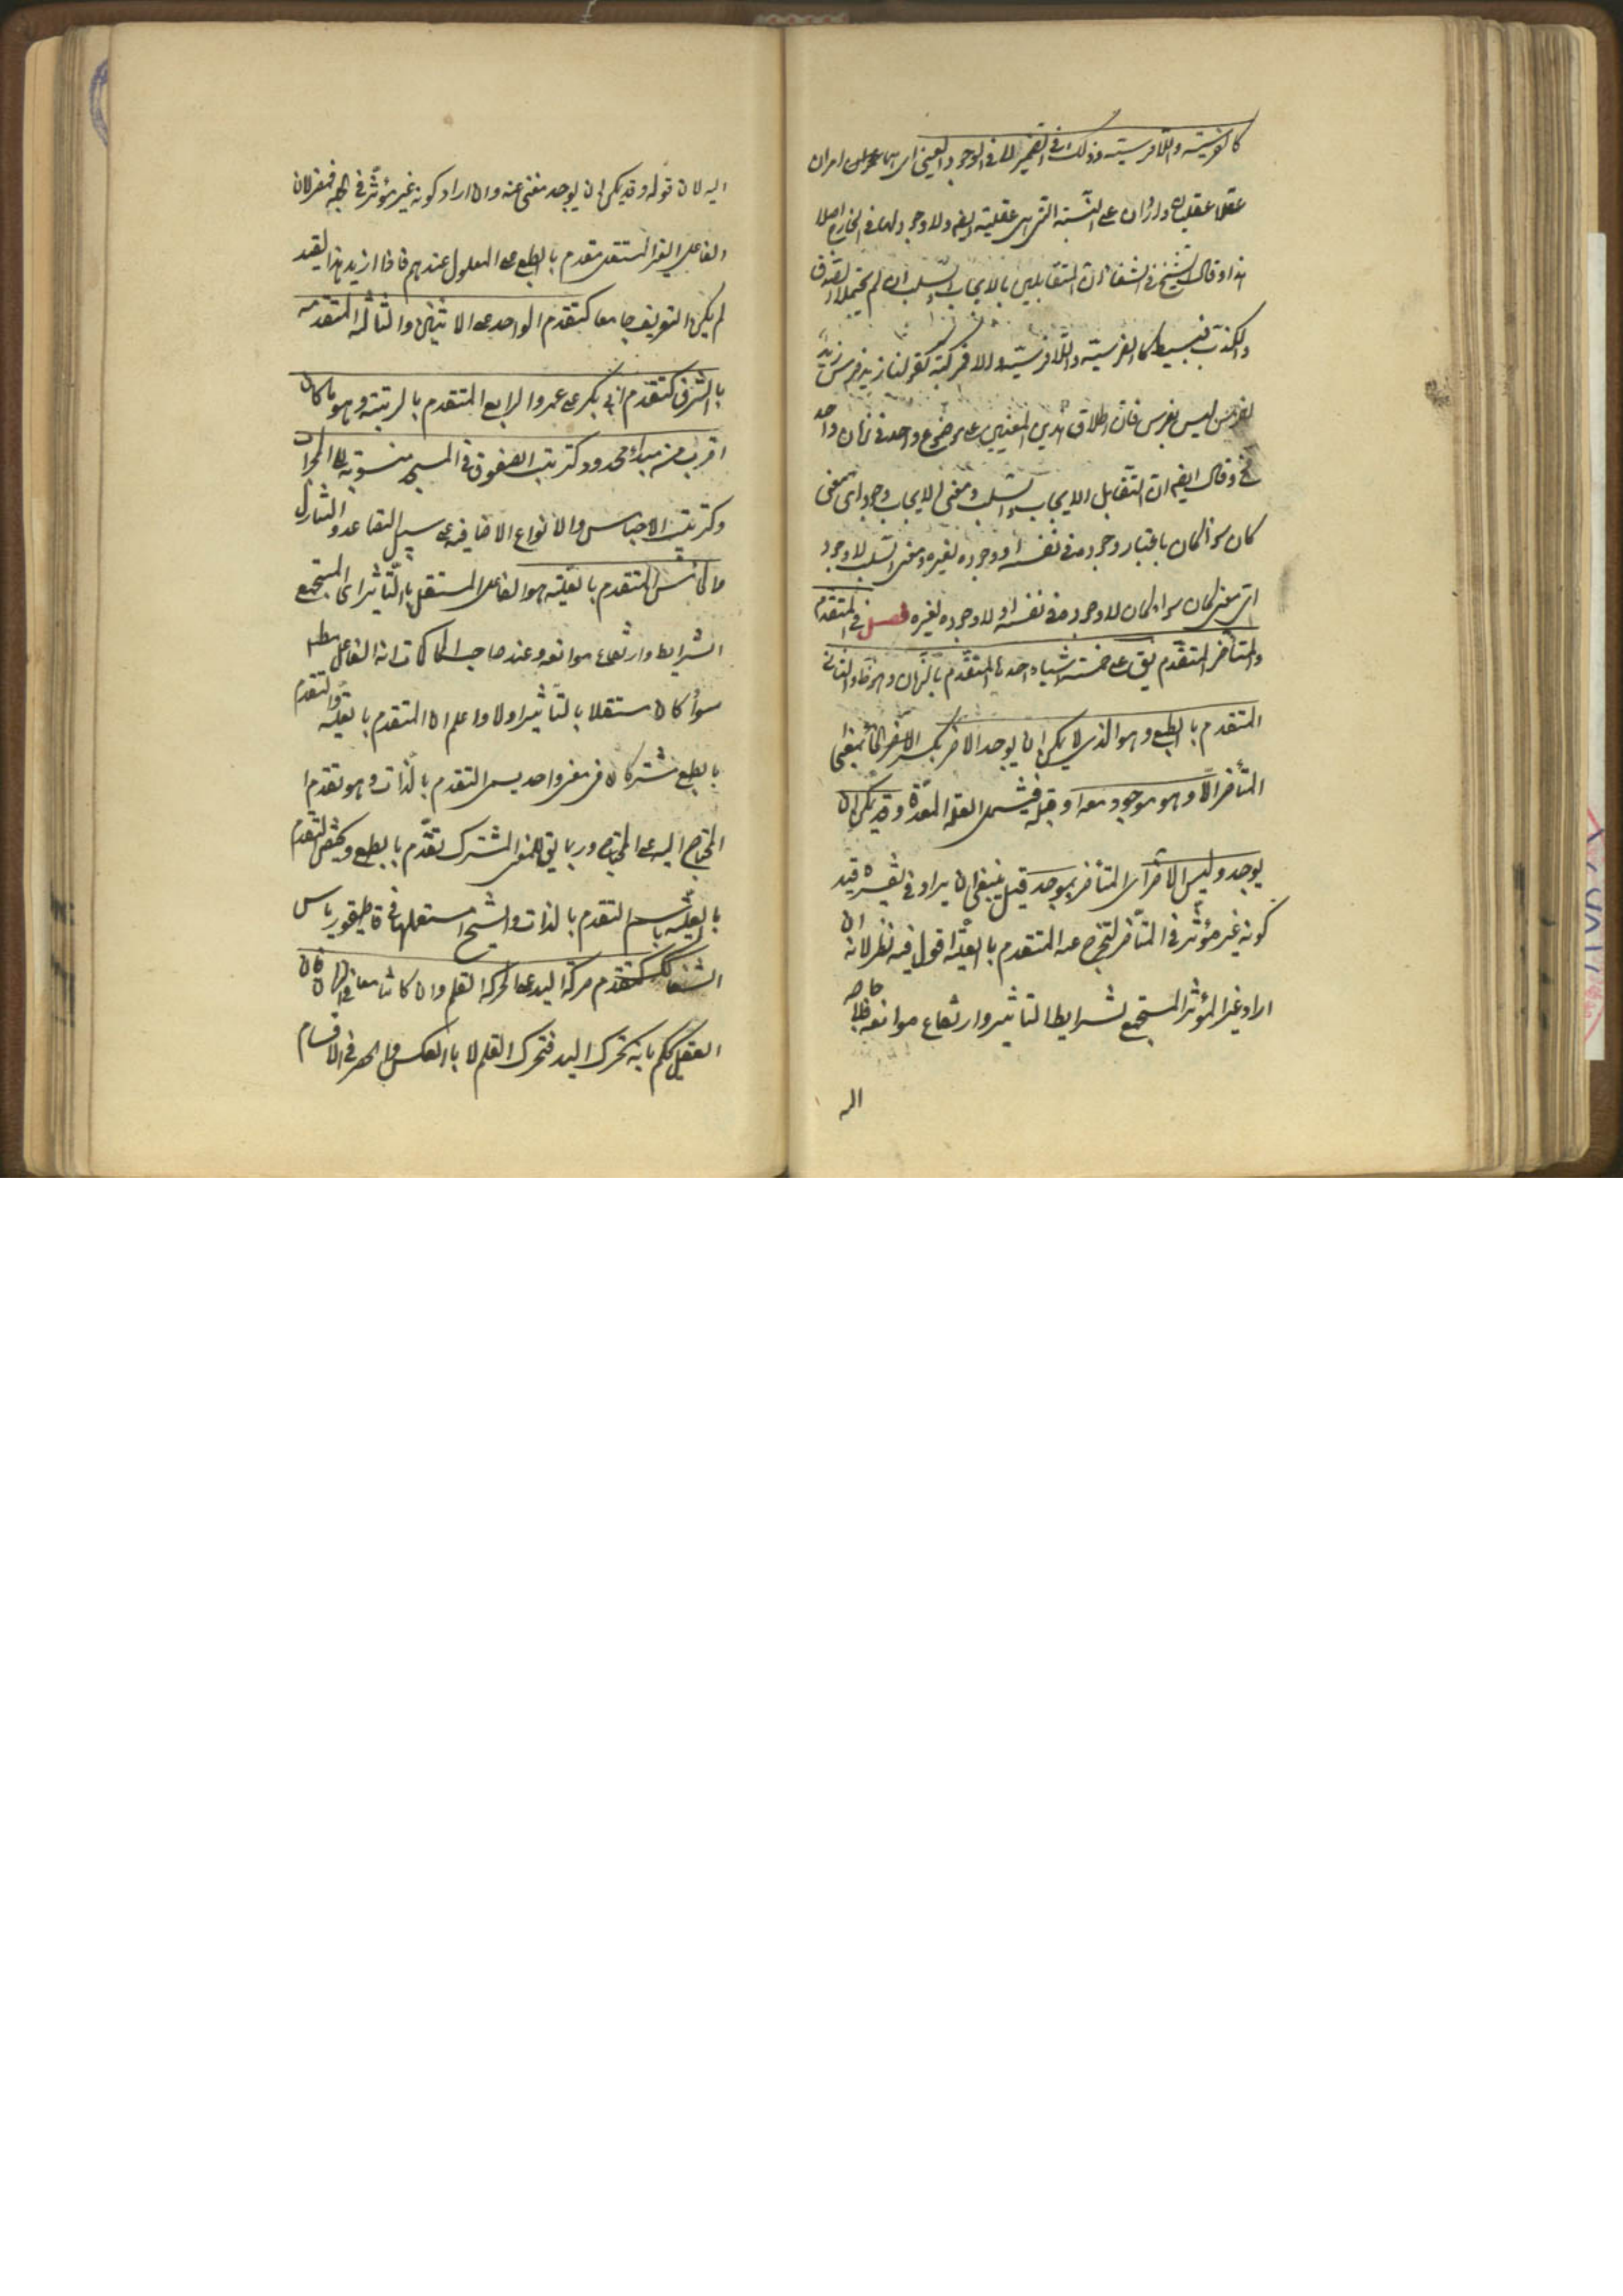 كالفرسية واللافرسية وذلك في الضمير لا في الوجود العيني اى امران
عقلا عقليان واردان على النسبة التى هى عقلية ايضا ولا وجود لها فى الخارج اصلا
هذا وقال الشيخ فى الشفا ان المتقابلين بالايجاب والسلب ان لم يحتملا الصدق
والكذب فبسيط كالفرسية واللافرسية والا فمركب كقولنا زيد فرس زيد
ليس بفرس فان اطلاق هذين المعنيين على موضوع واحد فى زمان واحد
مح وقال ايضا ان التقابل الايجاب والسلب ومعنى الايجاب وجود اى معنى
كان سواء كان باعتبار وجوده فى نفسه او وجوده لغيره ومعنى السلب لا وجود
اى معنى كان سواء كان لا وجوده فى نفسه او لا وجوده لغيره فصل فى المتقدم
والمتأخر المتقدم يق على خمسة اشياء احدها المتقدم بالزمان وهو ظ والثانى
المتقدم بالطبع وهو الذى لا يمكن ان يوجد الاخر
المتأخر الا وهو موجود معه او قبله فيسمى العلة المعدة وقد يمكن ان
يوجد وليس الاخر اى المتأخر بموجود قيل ينبغى ان يزاد فى تفسيره قيد
كونه غير مؤثر فى المتأخر ليخرج عنه المتقدم بالعلية اقول فيه نظر لانه ان
اراد غير المؤثر المستجمع لشرايط التاثير وارتفاع موانعه فلا حاجة
اليه
اليه لان قوله وقد يمكن ان يوجد مغنى عنه وان اراد كونه غير مؤثر فى الجملة فمضر لان
الفاعل الغير المستقل متقدم بالطبع على المعلول عندهم فاذا ازيد هذا القيد
لم يكن التعريف جامعا كتقدم الواحد على الاثنين والثالث المتقدم
بالشرف كتقدم ابى بكر على عمر والرابع المتقدم بالرتبة وهو ما كان
اقرب من مبدأ محدود كترتيب الصفوف فى المسجد منسوبة الى المحراب
وكترتيب الاجناس والانواع الاضافية على سبيل التصاعد والتنازل
والخامس المتقدم بالعلية هو الفاعل المستقل بالتأثير اى المستجمع
الشرايط وارتفاع موانعه وعند صاحب المحاكمات انه الفاعل مطلقا
سواء كان مستقلا بالتأثير اولا واعلم ان المتقدم بالعلية والمتقدم
بالطبع مشتركان فى معنى واحد يسمى التقدم بالذات وهو تقدم
المحتاج اليه على المحتاج وربما يق للمعنى المشترك تقدم بالطبع ويخص التقدم
بالعلية باسم التقدم بالذات والشيخ استعملها فى قاطيغورياس
الشفا كذلك كتقدم حركة اليد على حركة القلم وان كانتا معا فى الزمان فان
العقل يحكم بانه تحرك اليد فتحرك القلم لا بالعكس والحصر فى الاقسام